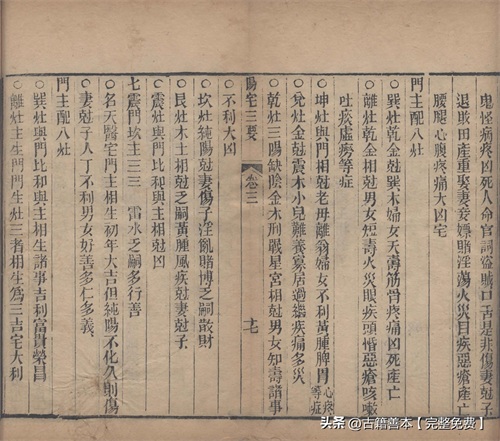 鬼怪痛疼凶死人命官詞盜賊口舌是非傷妻尅子
退敗田產重娶妻妾嫖賭淫蕩火災目疾惡瘡產亡
腰腿心腹疼痛大凶宅
門主配八灶
○巽灶乾金尅巽木婦女夭壽筋骨疼痛凶死產亡
○離灶乾金相尅男女短壽火災眼疾頭惛惡瘡咳嗽
吐痰虛癆等症
○坤灶與門相尅老母離翁婦女不利黃腫脾胃心疼等症
○兌灶金尅震木小兒難養寡居過繼疾痛多災
○乾灶三陽缺陰金木刑戰星宮相尅男女短壽諸事
不利大凶
陽宅三要 卷三 十七
○坎灶純陽尅妻傷子淫亂賭博之嗣散財
○艮灶木土相尅乏嗣黃腫風疾尅妻尅子
○震灶與門比和與主相尅凶
七震門坎主三三 雷水乏嗣多行善
○名天醫宅門主相生初年大吉但純陽不化久則傷
妻尅子人丁不利男女好善多仁多義
門主配八灶
○巽灶與門比和與主相生諸事吉利富貴榮昌
○離灶主生門門生灶三者相生為三吉宅大利
头条 @古籍善本【完整免费】